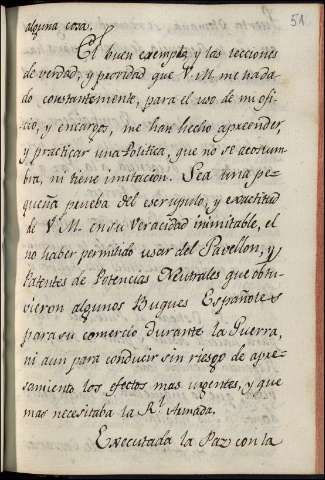 alguna cosa.
51
El buen exemplo, y las lecciones
de verdad, y probidad que V. M. me ha da-
do constantemente, para el uso de mi ofi-
cio, y encargos, me han hecho aprender,
y practicar una Politica, que no se acostum-
bra, ni tiene imitacion. Sea una pe-
queña prueba del escrupulo, y exactitud
de V. M. en su veracidad inimitable, el
no haber permitido usar del Pavellon, y
Patentes de Potencias Neutrales que obtu-
vieron algunos Buques Españoles
para su comercio durante la Guerra,
ni aun para conducir sin riesgo de apre-
samiento los efectos mas urgentes, y que
mas necesitaba la Rl. Armada.
Executada la Paz con la